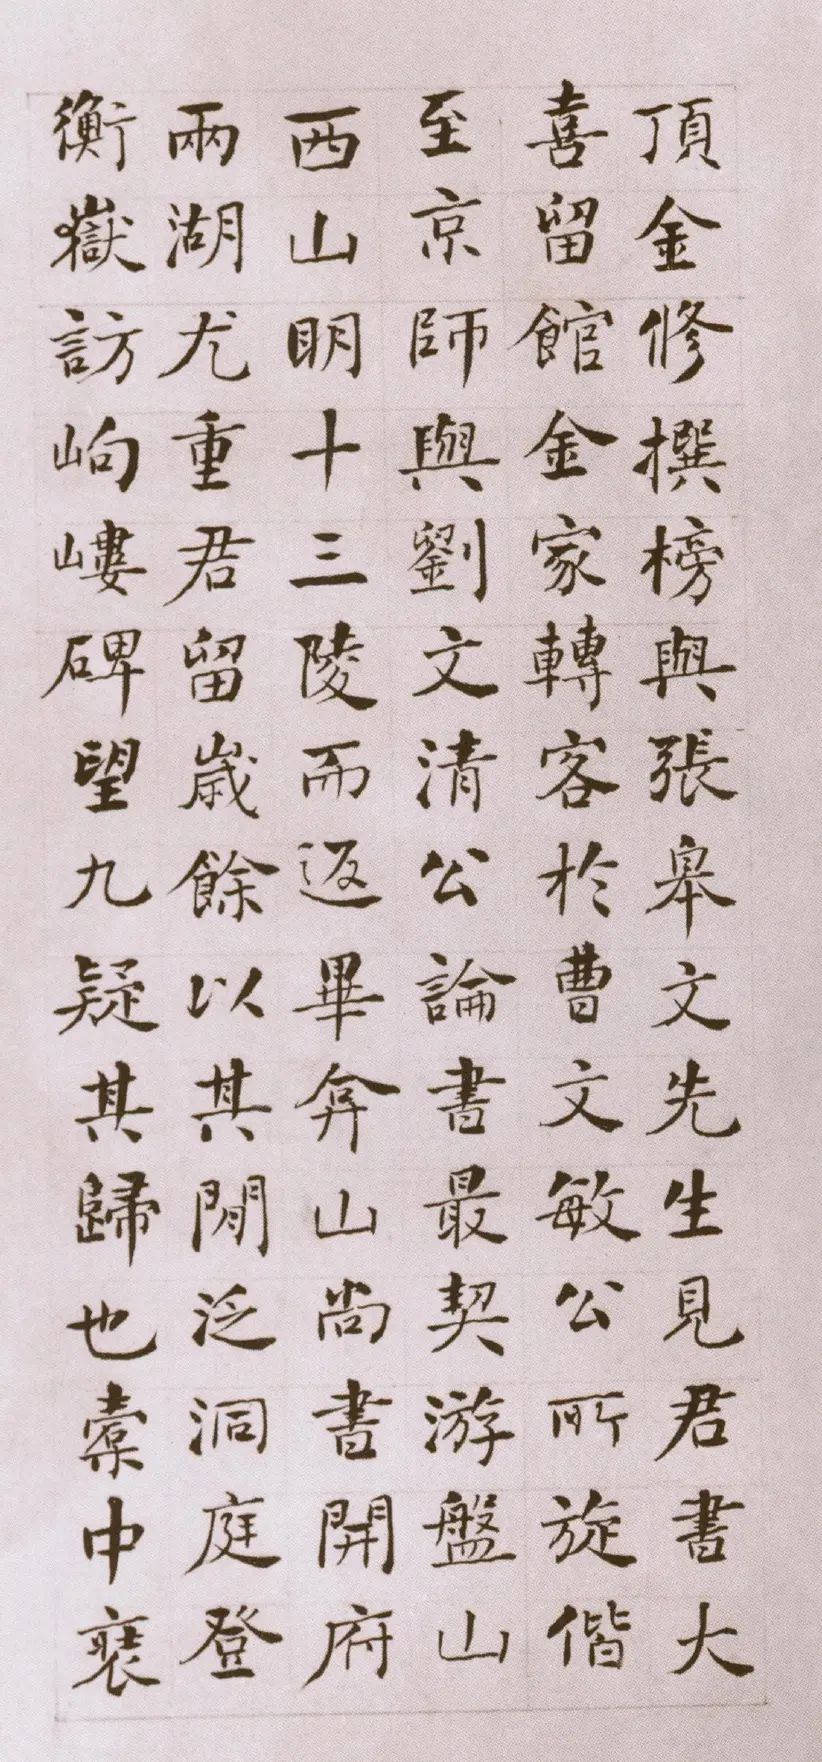 頂金修撰榜與張皋文先生見君書大
喜留館金家轉客於曹文敏公所旋偕
至京師與劉文清公論書最契游盤山
西山明十三陵而返畢弇山尚書開府
兩湖尤重君留歲餘以其閒泛洞庭登
衡嶽訪岣嶁碑望九疑其歸也橐中裒